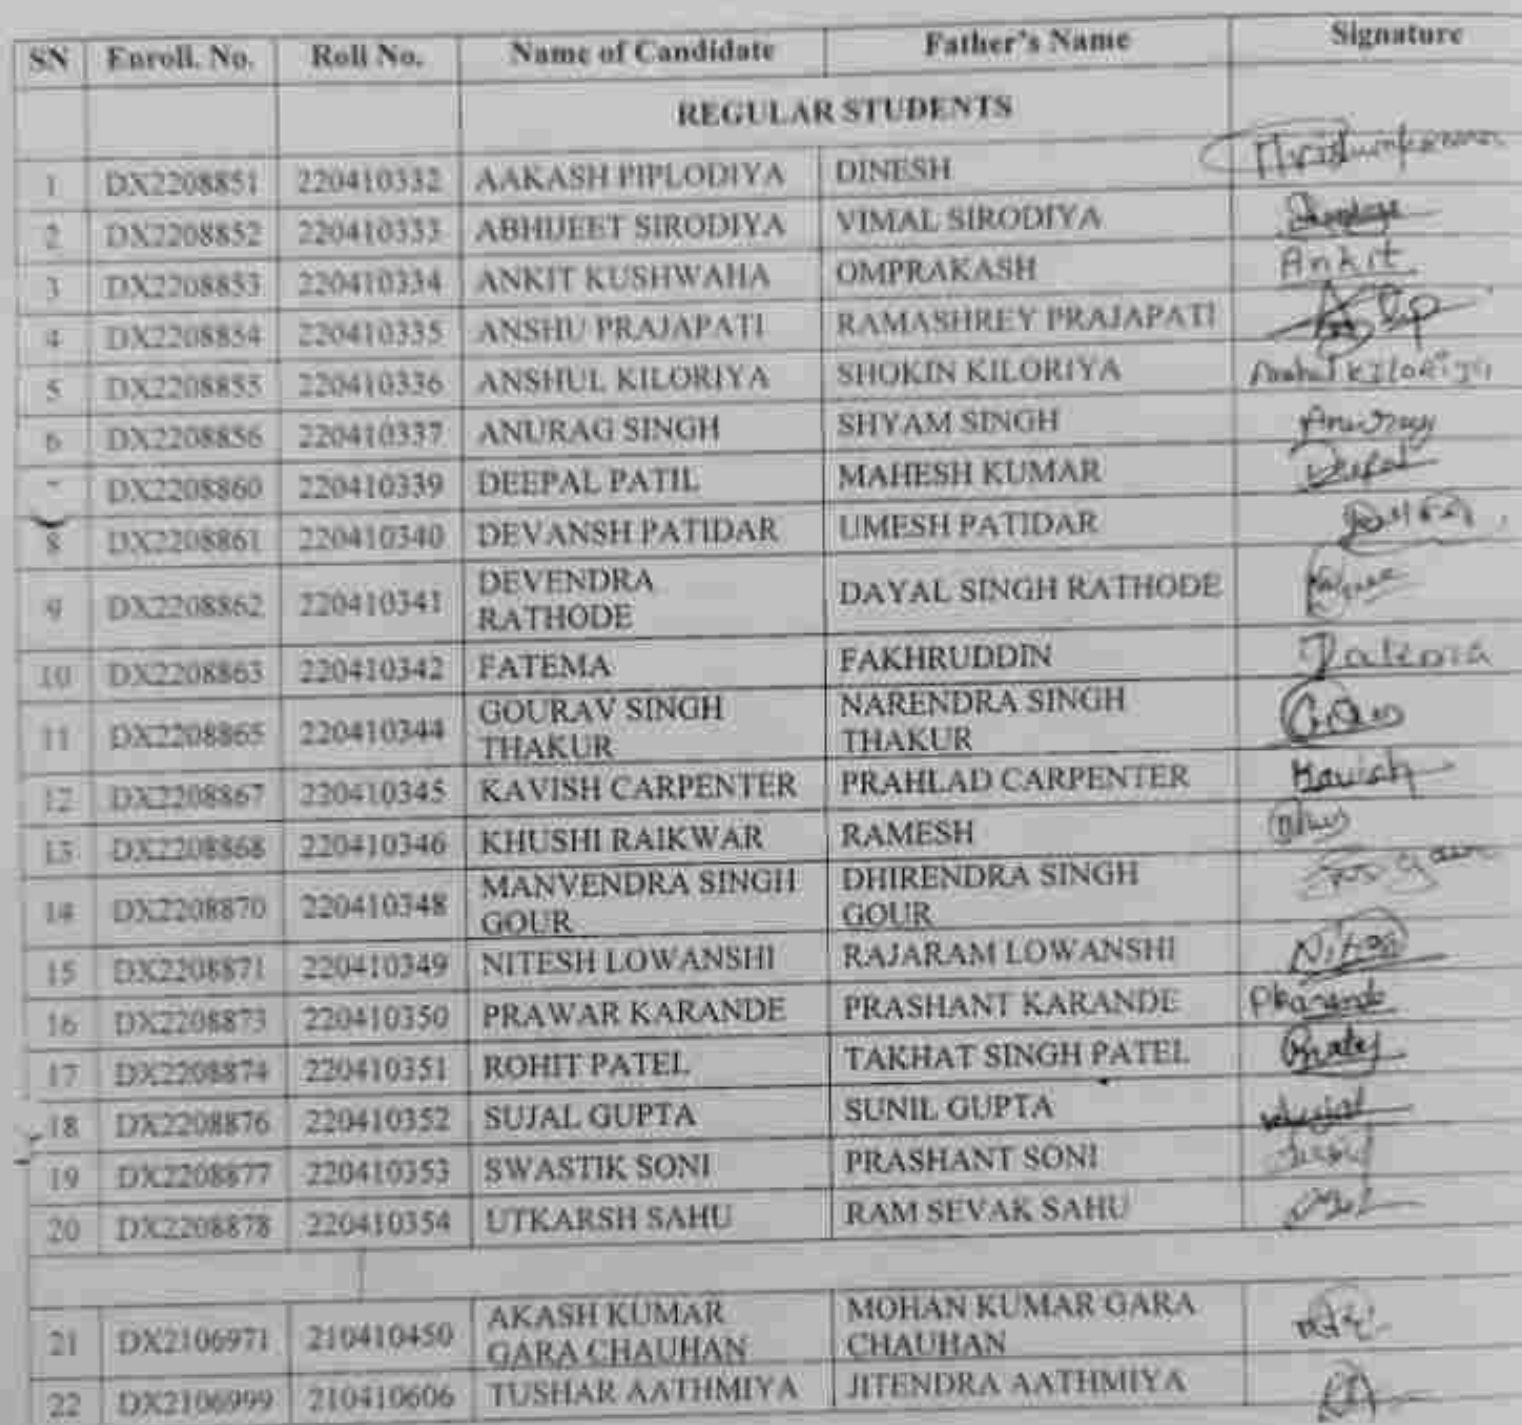 SN Enroll. No. Roll No. Name of Candidate Father's Name Signature
REGULAR STUDENTS
1 DX2208851 220410332 AAKASH PIPLODIYA DINESH
2 DX2208852 220410333 ABHIJEET SIRODIYA VIMAL SIRODIYA
3 DX2208853 220410334 ANKIT KUSHWAHA OMPRAKASH Ankit
4 DX2208854 220410335 ANSHU PRAJAPATI RAMASHREY PRAJAPATI
5 DX2208855 220410336 ANSHUL KILORIYA SHOKIN KILORIYA
6 DX2208856 220410337 ANURAG SINGH SHYAM SINGH Anurag
DX2208860 220410339 DEEPAL PATIL MAHESH KUMAR Deepal
8 DX2208861 220410340 DEVANSH PATIDAR UMESH PATIDAR
9 DX2208862 220410341 DEVENDRA DAYAL SINGH RATHODE
RATHODE
10 DX2208863 220410342 FATEMA FAKHRUDDIN Fatema
11 DX2208865 220410344 GOURAV SINGH NARENDRA SINGH
THAKUR THAKUR
12 DX2208867 220410345 KAVISH CARPENTER PRAHLAD CARPENTER Kavish
13 DX2208868 220410346 KHUSHI RAIKWAR RAMESH
14 DX2208870 220410348 MANVENDRA SINGH DHIRENDRA SINGH
GOUR GOUR
15 DX2208871 220410349 NITESH LOWANSHI RAJARAM LOWANSHI
16 DX2208873 220410350 PRAWAR KARANDE PRASHANT KARANDE PKarande
17 DX2208874 220410351 ROHIT PATEL TAKHAT SINGH PATEL
18 DX2208876 220410352 SUJAL GUPTA SUNIL GUPTA
19 DX2208877 220410353 SWASTIK SONI PRASHANT SONI
20 DX2208878 220410354 UTKARSH SAHU RAM SEVAK SAHU
21 DX2106971 210410450 AKASH KUMAR MOHAN KUMAR GARA
GARA CHAUHAN CHAUHAN
22 DX2106999 210410606 TUSHAR AATHMIYA JITENDRA AATHMIYA